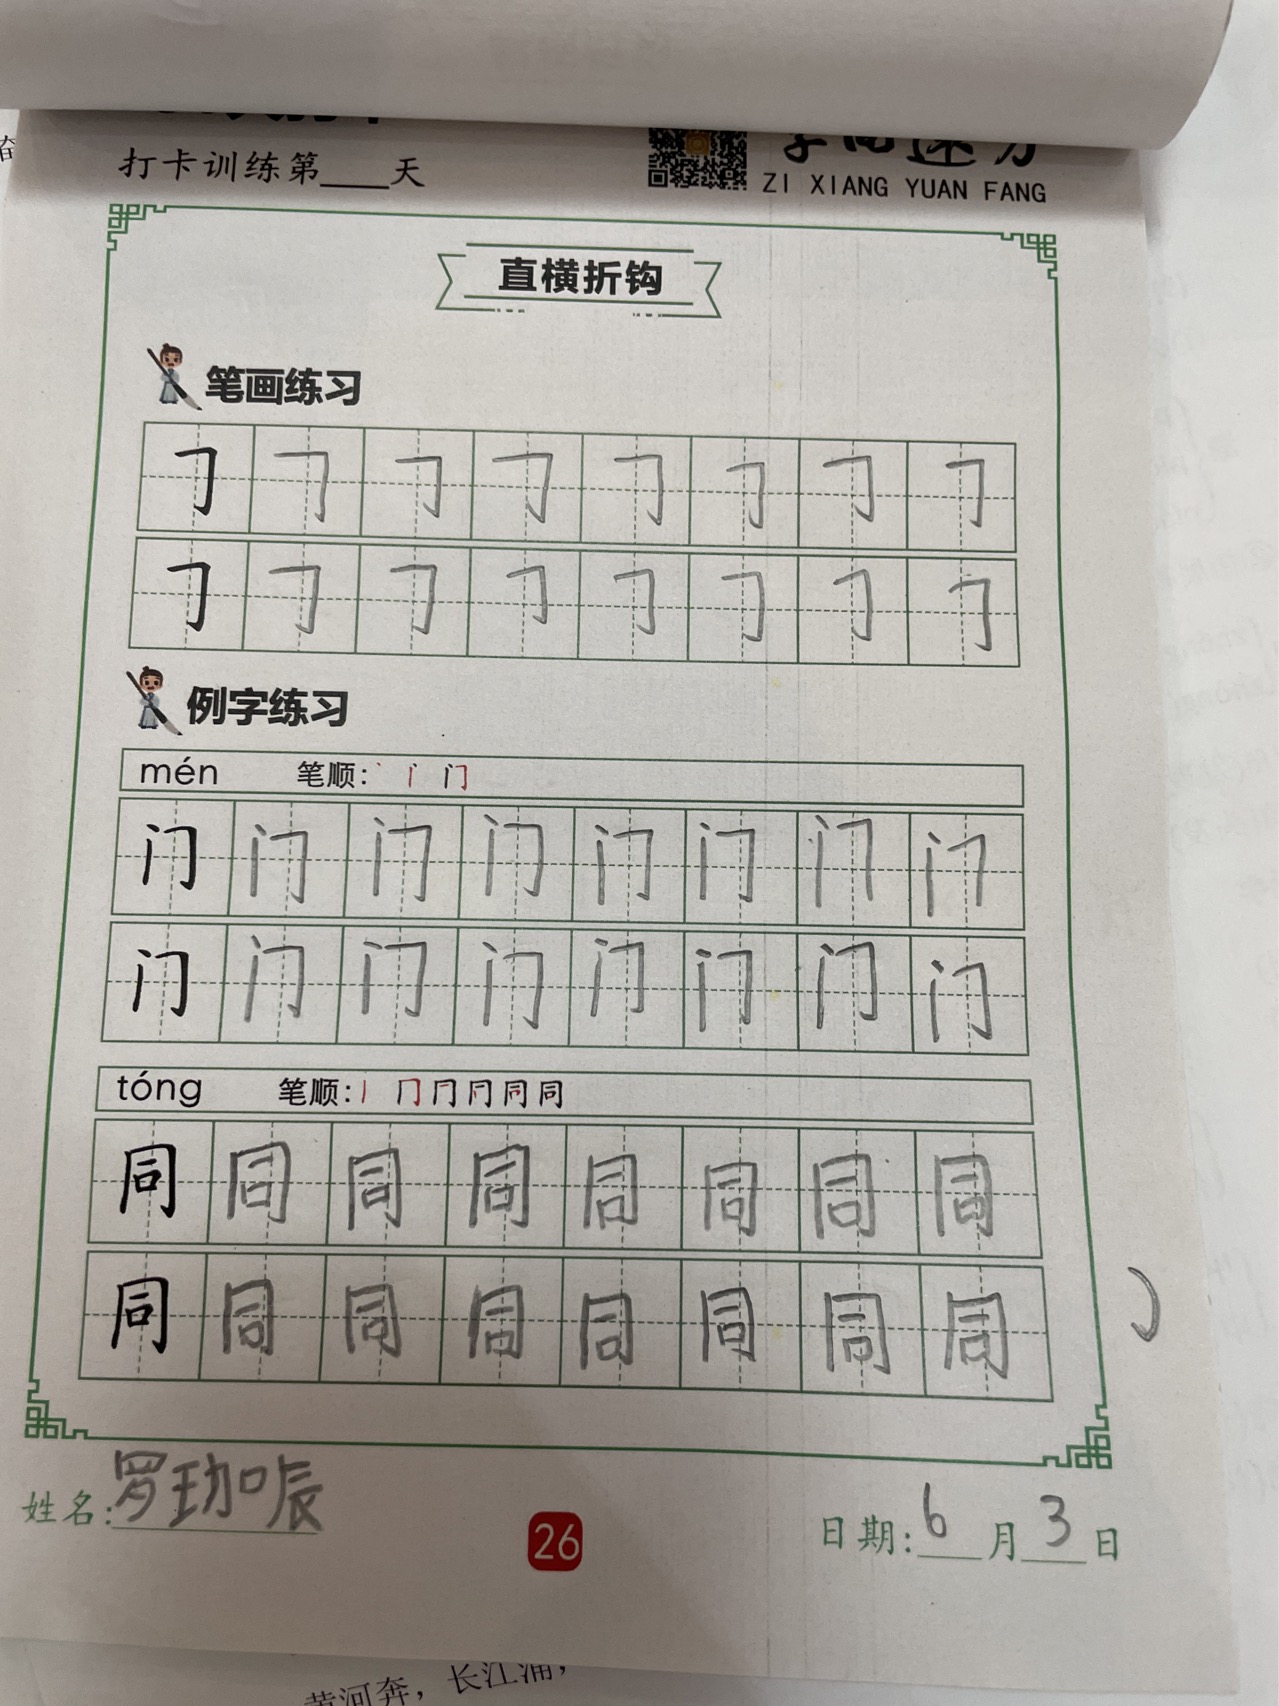 打卡训练第____天
ZI XIANG YUAN FANG
直横折钩
笔画练习
例字练习
mén 笔顺: 丶 丨 门
门 门 门 门 门 门 门 门
门 门 门 门 门 门 门 门
tóng 笔顺: 丨 冂 冂 同 同 同
同 同 同 同 同 同 同 同
同 同 同 同 同 同 同 同
姓名: 罗
26
日期: 6 月 3 日
黄河奔，长江涌，